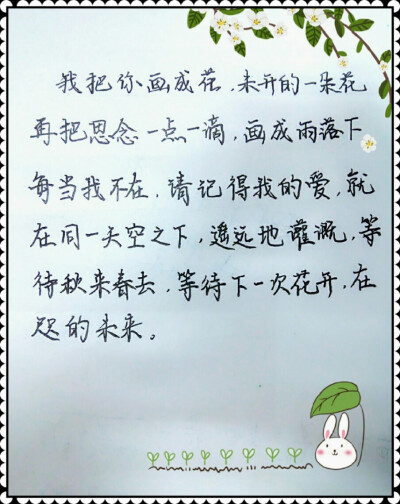 我把你画成花，未开的一朵花
再把思念一点一滴，画成雨落下
每当我不在，请记得我的爱，就
在同一天空之下，遥远地灌溉，等
待秋来春去，等待下一次花开，在
咫的未来。